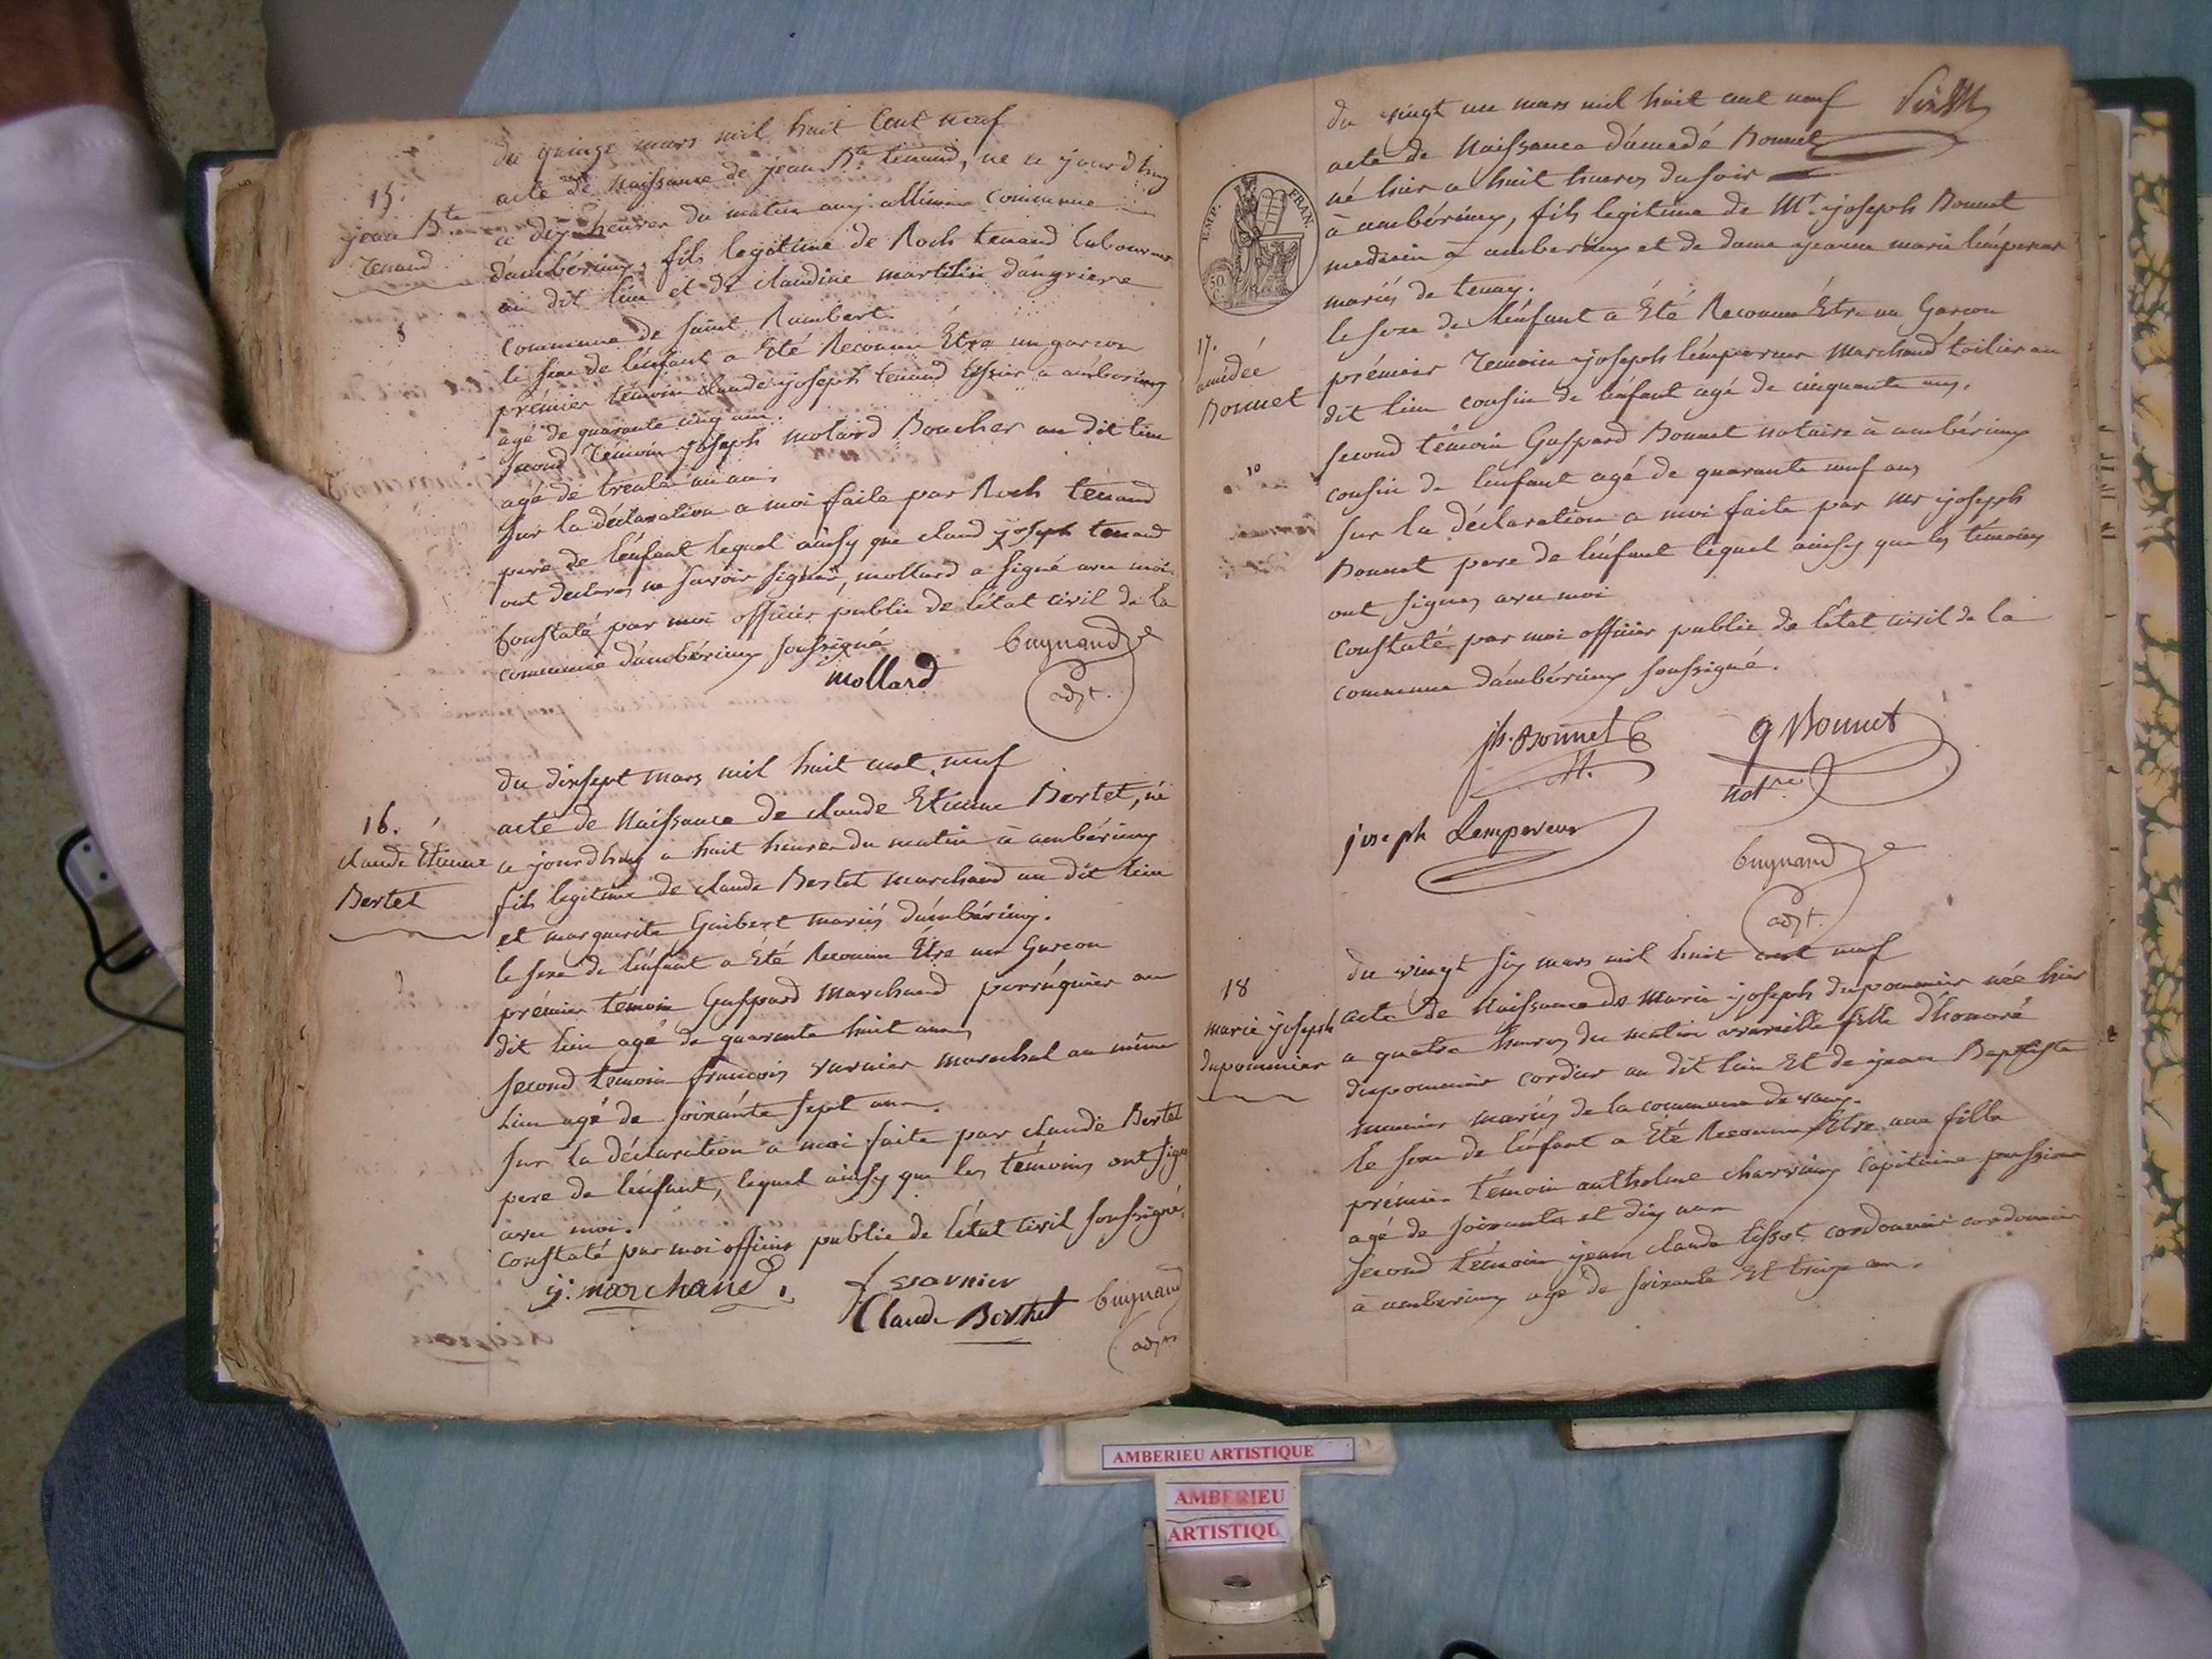 du quinze mars mil huit Cent neuf
15.
jean B.te
Tenand
acte de Naissance de jean B.te tenand, né ce jourd'huy
a dix heures du matin aux allimes commune
d'ambérieux, fils legitime de Roch tenand laboureur
au dit lieu et de claudine martelin d'angriere
commune de saint Rambert.
le sexe de l'enfant a Eté Reconnu Etre un garcon
prémier témoin claude joseph tenand tissier a ambérieux
agé de quarante cinq ans.
second Témoin joseph molard Boucher au dit lieu
agé de trente un ans
sur la déclaration a moi faite par Roch tenand
pere de l'enfant lequel ainsy que claud joseph tenand
ont declarés ne savoir signer, mollard a signé avec moi
Constaté par moi officier public de l'état civil de la
commune d'ambérieux soussigné
mollard
Cuynand
adjt.
du dixsept mars mil huit cent neuf
16.
claude Etienne
Bertet
acte de Naissance de claude Etienne Bertet, né
ce jourdhuy a huit heures du matin à ambérieux
fils legitime de claude Bertet marchand au dit lieu
et marguerite Guibert mariés d'ambérieux.
le sexe de l'enfant a Eté Reconnu Etre un Garcon
prémier témoin Gaspard Marchand perruquier au
dit lieu agé de quarante huit ans
second temoin francois varnier marechal au même
Lieu agé de soixante sept ans.
sur la déclaration a moi faite par claude Bertet
pere de l'enfant, lequel ainsy que les témoins ont signé
avec moi.
constaté par moi officier public de l'état civil soussigné
g: marchand.
f varnier
Claude Berthet
Cuynand
adjt
du vingt un mars mil huit cent neuf
acte de Naissance d'amedé Bonnet
né hier a huit heures du soir
à ambérieux, fils legitime de Mr. joseph Bonnet
medecin à amberieux et de dame jeanne marie l'empereur
mariés de tenay.
EMP. FRAN.
50
le sexe de l'enfant a Eté Reconnu Etre un Garcon
17.
amédée
Bonnet
prémier Temoin joseph l'empereur Marchand toilier au
dit lieu cousin de l'enfant agé de cinquante ans.
second témoin Gaspard Bonnet notaire à ambérieux
10
cousin de l'enfant agé de quarante neuf ans
sur la déclaration a moi faite par Mr joseph
Bonnet pere de l'enfant lequel ainsy que les témoins
ont signes avec moi
constaté par moi officier public de l'état civil de la
commune d'ambérieux soussigné.
jh. Bonnet
M.
g Bonnet
not.re
joseph Lempereur
Cuynand
adjt.
du vingt six mars mil huit cent neuf
18
marie joseph
dupommier
acte de Naissance de Marie joseph dupommier née hier
a quatre heures du matin fille d'honoré
dupommier cordier au dit lieu Et de jean Baptiste
mariés de la commune de vaux.
le sexe de l'enfant a Eté Reconnu Etre une fille
prémier témoin antholme charvieux capitaine pensionné
agé de soixante et dix ans
second témoin jean claude tissot cordonnier cordonnier
à amberieux agé de soixante Et treize ans.
AMBERIEU ARTISTIQUE
AMBERIEU
ARTISTIQU